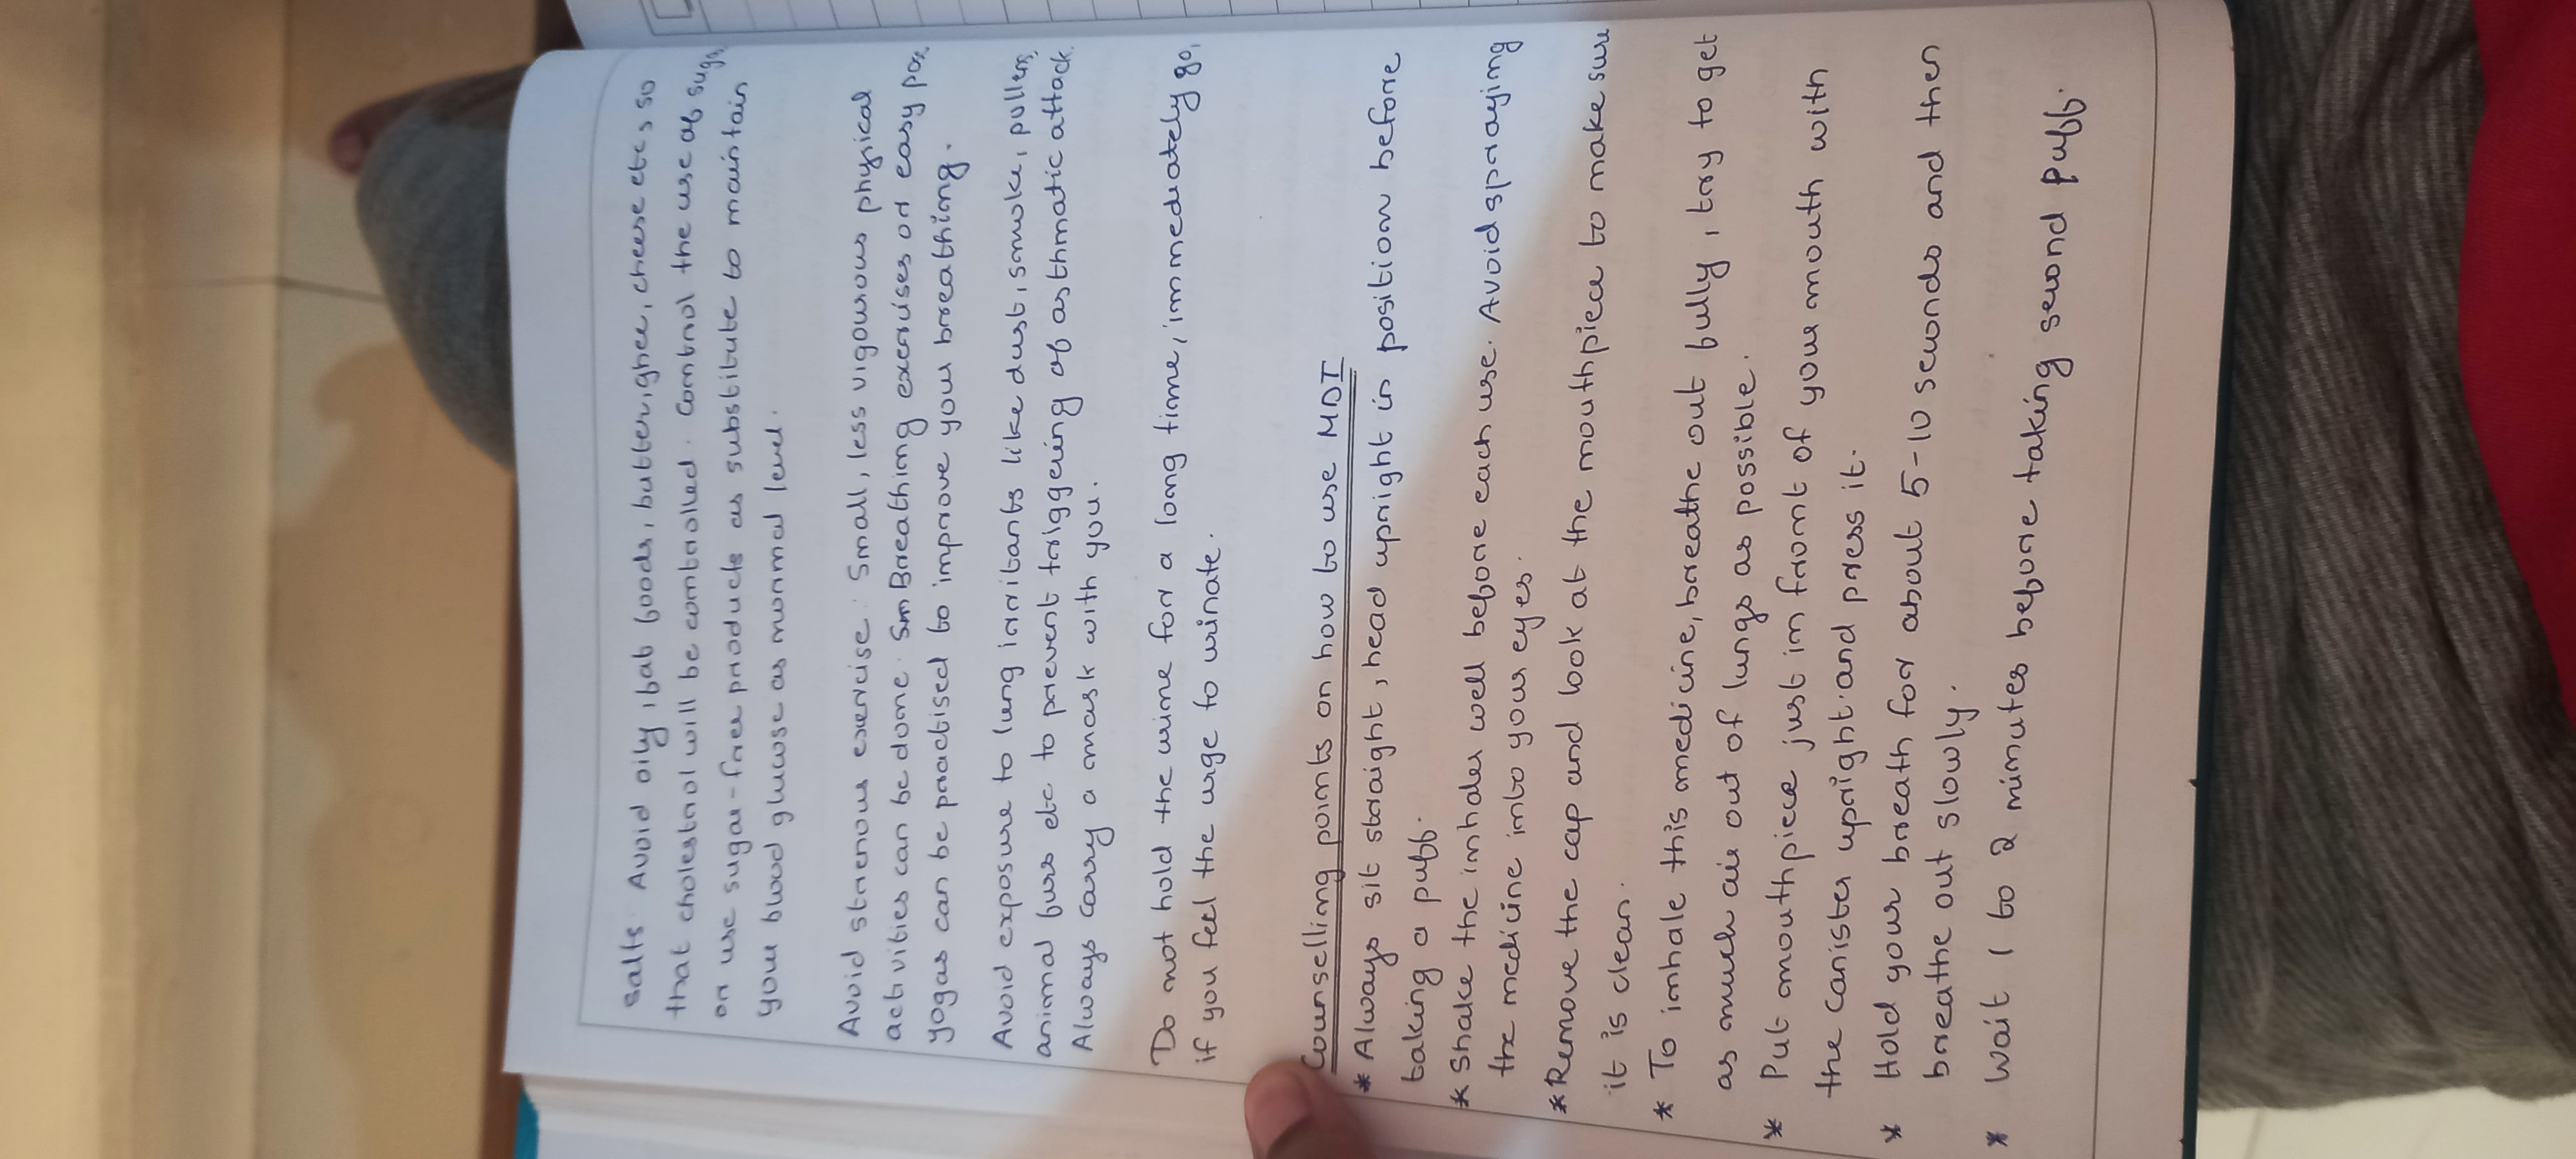 salts. Avoid oily, fat foods, butter, ghee, cheese etc, so
that cholestrol will be controlled. Control the use of
or use sugar-free products as substitute to maintain
your blood glucose as normal level.
Avoid strenous exercise. Small, less vigourous physical
activities can be done. Sm Breathing exercises or easy
yogas can be practised to improve your breathing.
Avoid exposure to lung irritants like dust, smoke, pollens,
animal furs etc to prevent triggering of asthmatic attack.
Always carry a mask with you.
Do not hold the urine for a long time, immediately go,
if you feel the urge to urinate.
Counselling points on how to use MDI
* Always sit straight, head upright in position before
taking a puff.
* Shake the inhaler well before each use. Avoid spraying
the medicine into your eyes.
* Remove the cap and look at the mouthpiece to make sure
it is clean.
* To inhale this medicine, breathe out fully, try to get
as much air out of lungs as possible.
* Put mouthpiece just in front of your mouth with
the canister upright and press it.
* Hold your breath for about 5-10 seconds and then
breathe out slowly.
* Wait 1 to 2 minutes before taking second puff.